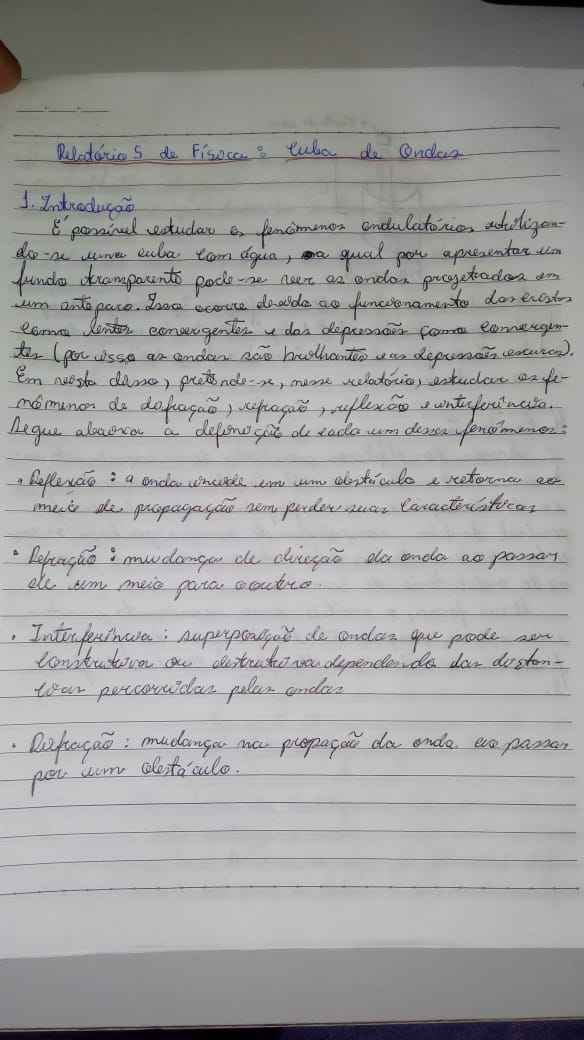 Relatório 5 de Física: Cuba de Ondas
1. Introdução
É possível estudar os fenômenos ondulatórios utilizan-
do-se uma cuba com água, na qual por apresentar um
fundo transparente pode-se ver as ondas projetadas em
um anteparo. Isso ocorre devido ao funcionamento das cristas
como lentes convergentes e das depressões como convergen-
tes (por isso as ondas são brilhantes e as depressões escuras).
Em vista disso, pretende-se, nesse relatório, estudar os fe-
nômenos de difração, refração, reflexão e interferência.
Segue abaixo a definição de cada um desses fenômenos:
• Reflexão: a onda incide em um obstáculo e retorna ao
meio de propagação sem perder suas características
• Refração: mudança de direção da onda ao passar
de um meio para outro.
• Interferência: superposição de ondas que pode ser
construtiva ou destrutiva dependendo das distân-
cias percorridas pelas ondas
• Difração: mudança na propação da onda ao passar
por um obstáculo.